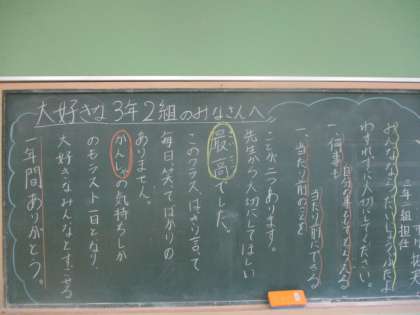 大好きな3年2組のみなさんへ。
一年間ありがとう。
大好きなみんなとすごせる
のもラスト一日となり、
かんしゃの気持ちしか
ありません。
毎日、笑ってばかりの
このクラス、はっきり言って
最高でした。
先生から大切にしてほしい
ことが二つあります。
一、当たり前のことを
当たり前にできる
一、何事も
わすれずに大切にしてください。
みんななら、だいじょうぶだよ
三年二組担任